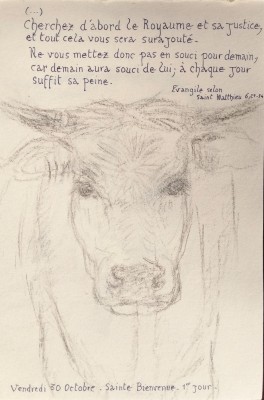 (...)
Cherchez d'abord le Royaume et sa justice,
et tout cela vous sera surajouté.
Ne vous mettez donc pas en souci pour demain,
car demain aura souci de lui, à chaque jour
suffit sa peine.
Evangile selon
Saint Matthieu 6,
Vendredi 30 Octobre - Sainte Bienvenue - 1er jour -